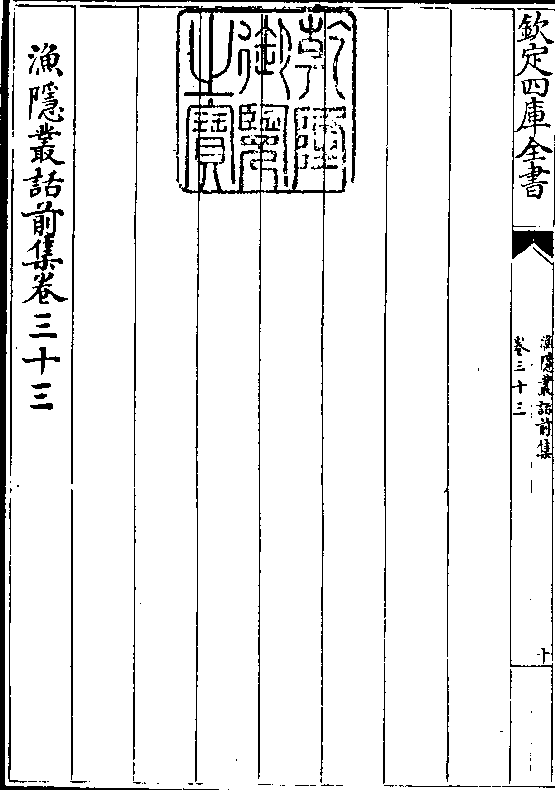 欽定四庫全書
漁隱叢話前集
卷三十三
十
乾隆
御覽
之寶
漁隱叢話前集卷三十三